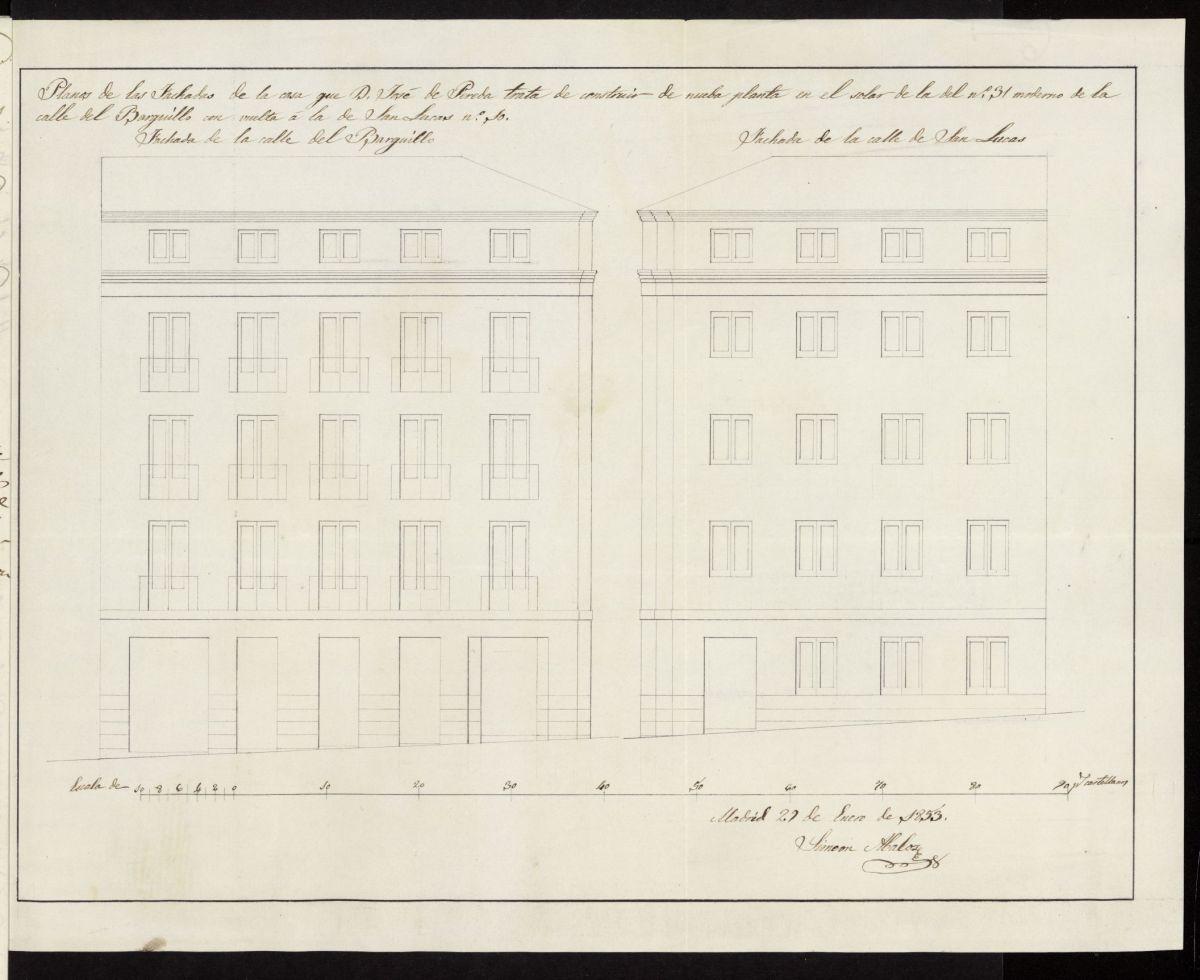 Planos de las Fachadas de la casa que D. José de Pereda trata de construir de nueba planta en el solar de la del nº 31 moderno de la
calle del Barquillo con vuelta á la de San Lucas nº 10.
Fachada de la calle del Barquillo
Fachada de la calle de San Lucas
Escala de 10 8 6 4 2 0 10 20 30 40 50 60 70 80 90 ps castellanos
Madrid 29 de Enero de 1853.
Simeon Abalos